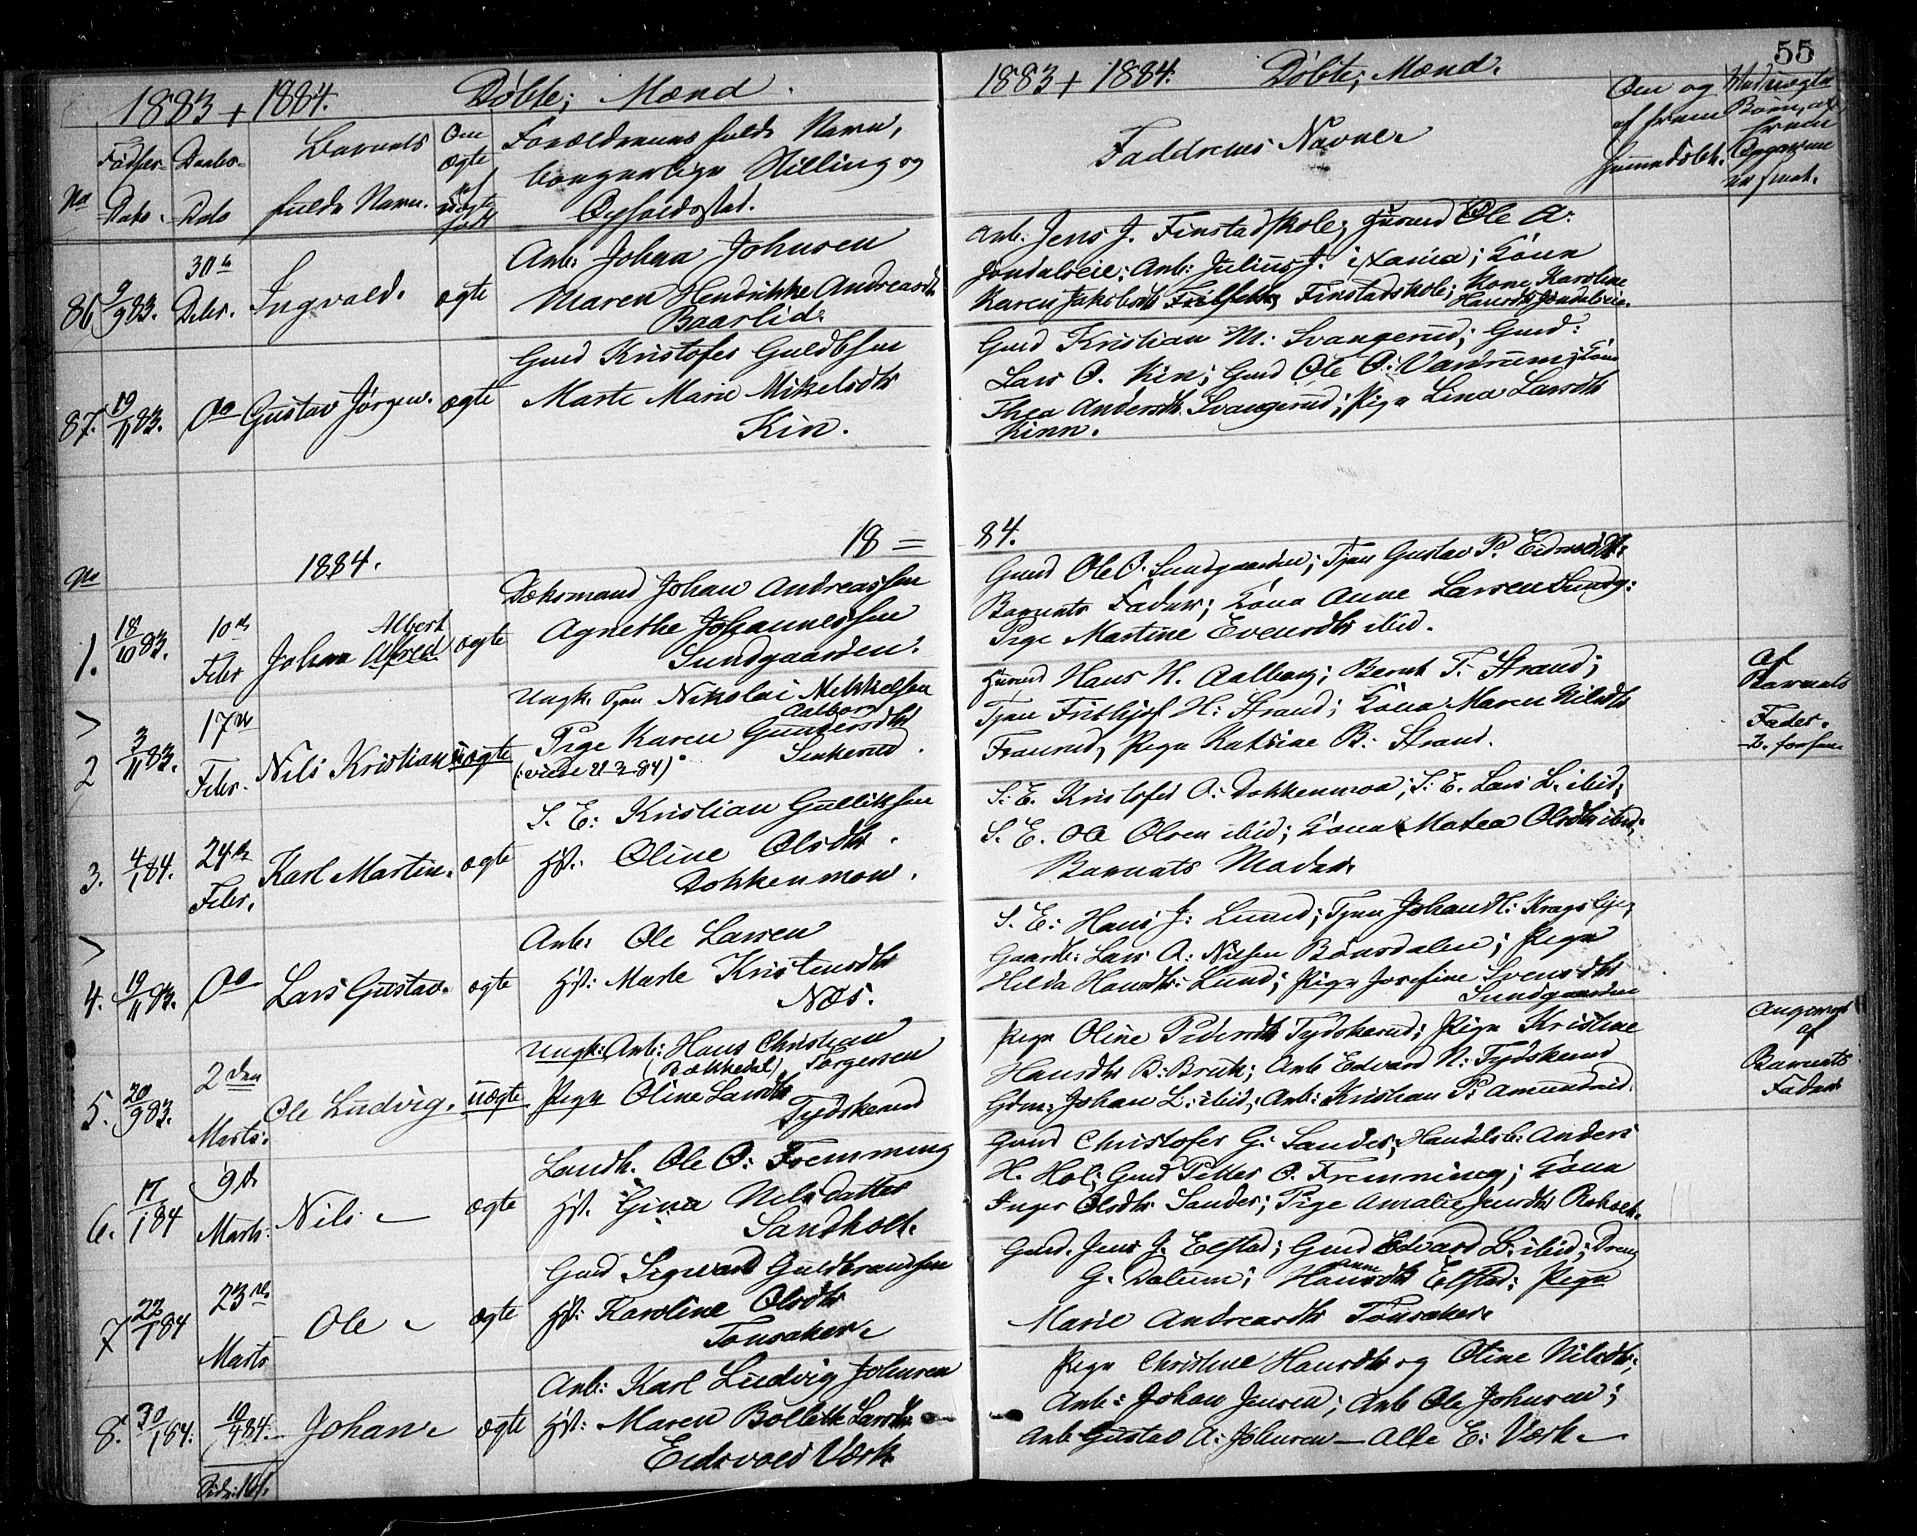 55
1883 + 1884. Döbte; Mænd.
No
Födsels-
Dato.
Daabs-
Dato
Barnets
fulde Navn.
Om
ægte
el.
uægte
född
Forældrenes fulde Navn,
borgerlige Stilling og
Opholdssted.
86
9/9 83.
30te
Debr.
Ingvald.
ægte
Arb: Johan Johnsen
Maren Hendrikke Andreasdtr
Baarlid.
87.
19/11 83.
Do
Gustav Jörgen.
ægte
Gmd Kristofer Guldbsen
Marte Marie Mikelsdtr
Kin.
18 =
No
1884.
1.
18/10 83.
10de
Febr
Johan Albert
Alfred
ægte
Johan Andreassen
Agnethe Johannessen
Sundgaarden.
2
3/11 83.
17de
Febr.
Nils Kristian
uægte
Ungk. Tjen Nikolai Mekkelsen
Aalborg
Pige Karen Gundersdtr
Sinkerud.
(: viede 21-3-84)
3.
4/1 84.
24de
Febr.
Karl Martin.
ægte
S. E: Kristian Gulliksen
Hst: Oline Olsdtr.
Dokkenmoen.
4.
19/11 83.
Do
Lars Gustav.
ægte
Arb: Ole Larsen
Hst: Marte Kristensdtr
Næs.
5.
20/9 83.
2den
Marts.
Ole Ludvig.
uægte
Ungk: Arb: Hans Christian
(Bækkedal) Torgersen
Pige Oline Larsdtr
Tydskerud
6.
17/1 84
9de
Marts.
Nils
ægte
Landh. Ole O: Fremming
Hst. Gina Nilsdatter
Sandholt.
7
22/1 84
23de
Marts
Ole
ægte
Gmd Sigvard Guldbrandsen
Hst: Karoline Olsdtr
Tönsaker
8.
30/1 84.
10/4 84.
Johan
ægte
Arb: Karl Ludvig Johnsen
Hst: Maren Bollette Larsdtr
Eidsvold Værk
1883 + 1884. Döbte; Mænd.
Faddrenes Navne
Om og
af hvem
hjemmedöbt.
Uægte
Barn, af
hvem
Opgavene
er gjort.
Arb: Jens J. Finstadskole; Husmd Ole A:
Jöndalseie; Arb: Julius J. Kona
Karen Jakobsdtr Finstadskole; Kone Karoline
Hansdtr Jöndalseie.
Gmd Kristian M: Svangerud; Gmd:
Lars O. Kin; Gmd Ole O: Vandrum; Kona
Thea Andersdtr Svangerud; Pige Lina Larsdtr
Kinn.
84.
Gmd Ole O. Sundgaarden; Tjen Gustav P. Eidsvold.
Barnets Fader; Kona Anne Larsen Sundg:
Pige Martine Evensdtr ibid.
Husmd Hans H. Aalborg; Bernt T. Strand;
Tjen Frithjof H: Strand; Kona Maren Nilsdtr
Pige Katrine B: Strand.
Af
Barnets
Fader.
S. E. Kristofer O: Dokkenmoen; S: E. Lars L. ibid;
S. E. Ole Olsen ibid; Kona Matea Olsdtr ibid;
Barnets Moder.
S. E: Hans J: Lund; Tjen Johan H:
Gaardb: Lars A: Nielsen Bönsdalen; Pige
Hilda Hansdtr Lund; Pige Josefine Svensdtr
Sundgaarden
Pige Oline Pedersdtr Tydskerud; Pige Kristine
Hansdtr B: Bruk; Arb Edvard N: Tydskerud
Gdm: Johan L: ibid; Arb: Kristian P: Amundrud.
Angivet
af
Barnets
Fader
Gmd Christofer G: Sander; Handelsb: Anders
H. Hol; Gmd Petter O. Fremming; Kona
Inger Olsdtr Sander; Pige Amalie Jensdtr Raholt.
Gmd. Jens J. Elstad; Gmd Edvard L: ibid; Dreng
G. Dalum; Anne Hansdtr Elstad; Pige
Marie Andreasdtr Tönsaker.
Pige Christine Hansdtr og Oline Nilsdtr;
Arb: Johan Jensen; Arb Ole Johnsen;
Arb Gustav A: Johnsen — Alle E: Værk